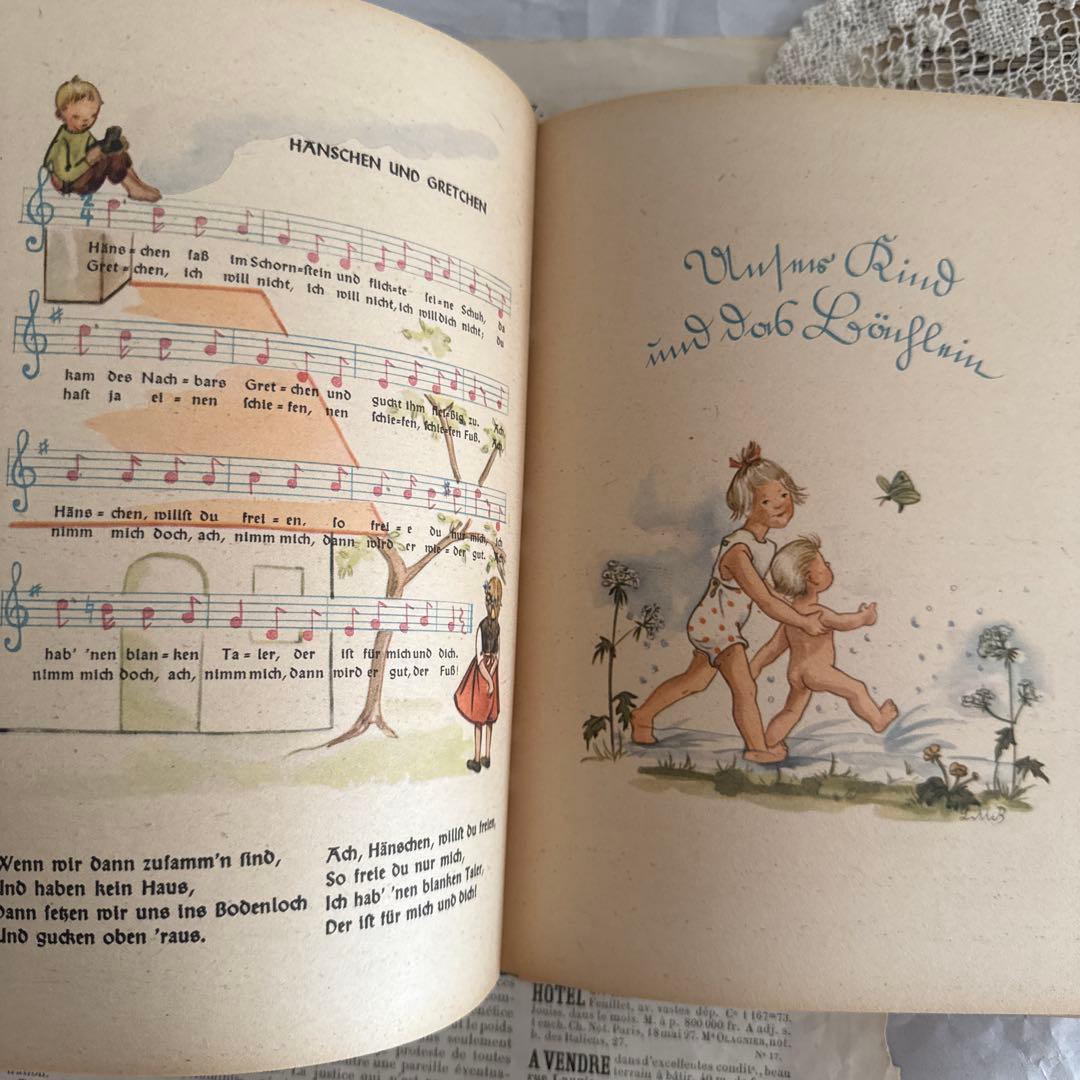 HÄNSCHEN UND GRETCHEN
2
4
Häns=chen ſaß im Schorn=ſtein und flick=te ſei=ne Schuh, da
Gret=chen, ich will nicht, ich will nicht, ich will dich nicht; Du
kam des Nach=bars Gret=chen und guckt ihm flei=ßig zu. Ach
haſt ja ei=nen ſchie=fen, nen ſchie=fen, ſchie=fen Fuß. Ach,
Häns=chen, willſt du frei=en, ſo frei=e du nur mich, ich
nimm mich doch, ach, nimm mich, dann wird er wie=der gut. Ach
hab' 'nen blan=ken Ta=ler, der iſt für mich und dich.
nimm mich doch, ach, nimm mich, dann wird er gut, der Fuß!
Wenn wir dann zuſamm'n ſind,
Und haben kein Haus,
Dann ſetzen wir uns ins Bodenloch
Und gucken oben 'raus.
Ach, Hänschen, willſt du freien,
So freie du nur mich,
Ich hab' 'nen blanken Taler,
Der iſt für mich und dich!
Unſer Kind
und das Bächlein
HOTEL Feuillet, av. vastes dép. Cᵉ 1167=73.
Jouiss. dans le mois. M. à p. 800 000 fr. A adj. s.
1 ench. Ch. Not. Paris, 18 mai 27. Mᵉ OLAGNIER, not.
b. des Italiens, 27.
Nº 17.
A VENDRE dans d'excellentes condit., beau
terrain à bâtir
néfice
ut le poids
seulement
proteste de toutes
entre une pareille éventua-
La justice qui n'est